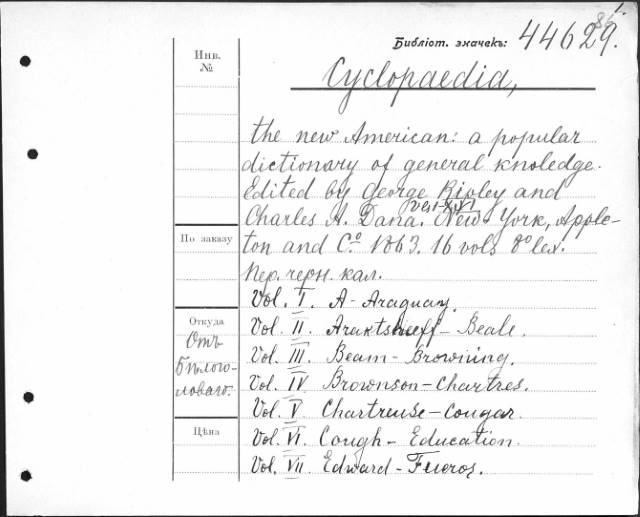 1.
86
Библіот. значекъ: 44629.
Инв.
№
Cyclopaedia,
the new American: a popular
dictionary of general knoledge.
Edited by George Ripley and
Vol I-XVI
Charles A. Dana. New-York, Apple-
ton and Cº 1863. 16 vols 8º lex.
По заказу
Пер. черн. кал.
Vol. I. A - Araguay.
Откуда
Отъ
Бѣлого-
ловаго.
Vol. II. Araktsheeff - Beale.
Vol. III. Beam - Browning.
Vol. IV Brownson - Chartres.
Vol. V Chartreuse - Cougar.
Цѣна
Vol. VI. Cough - Education.
Vol. VII. Edward - Fueros.